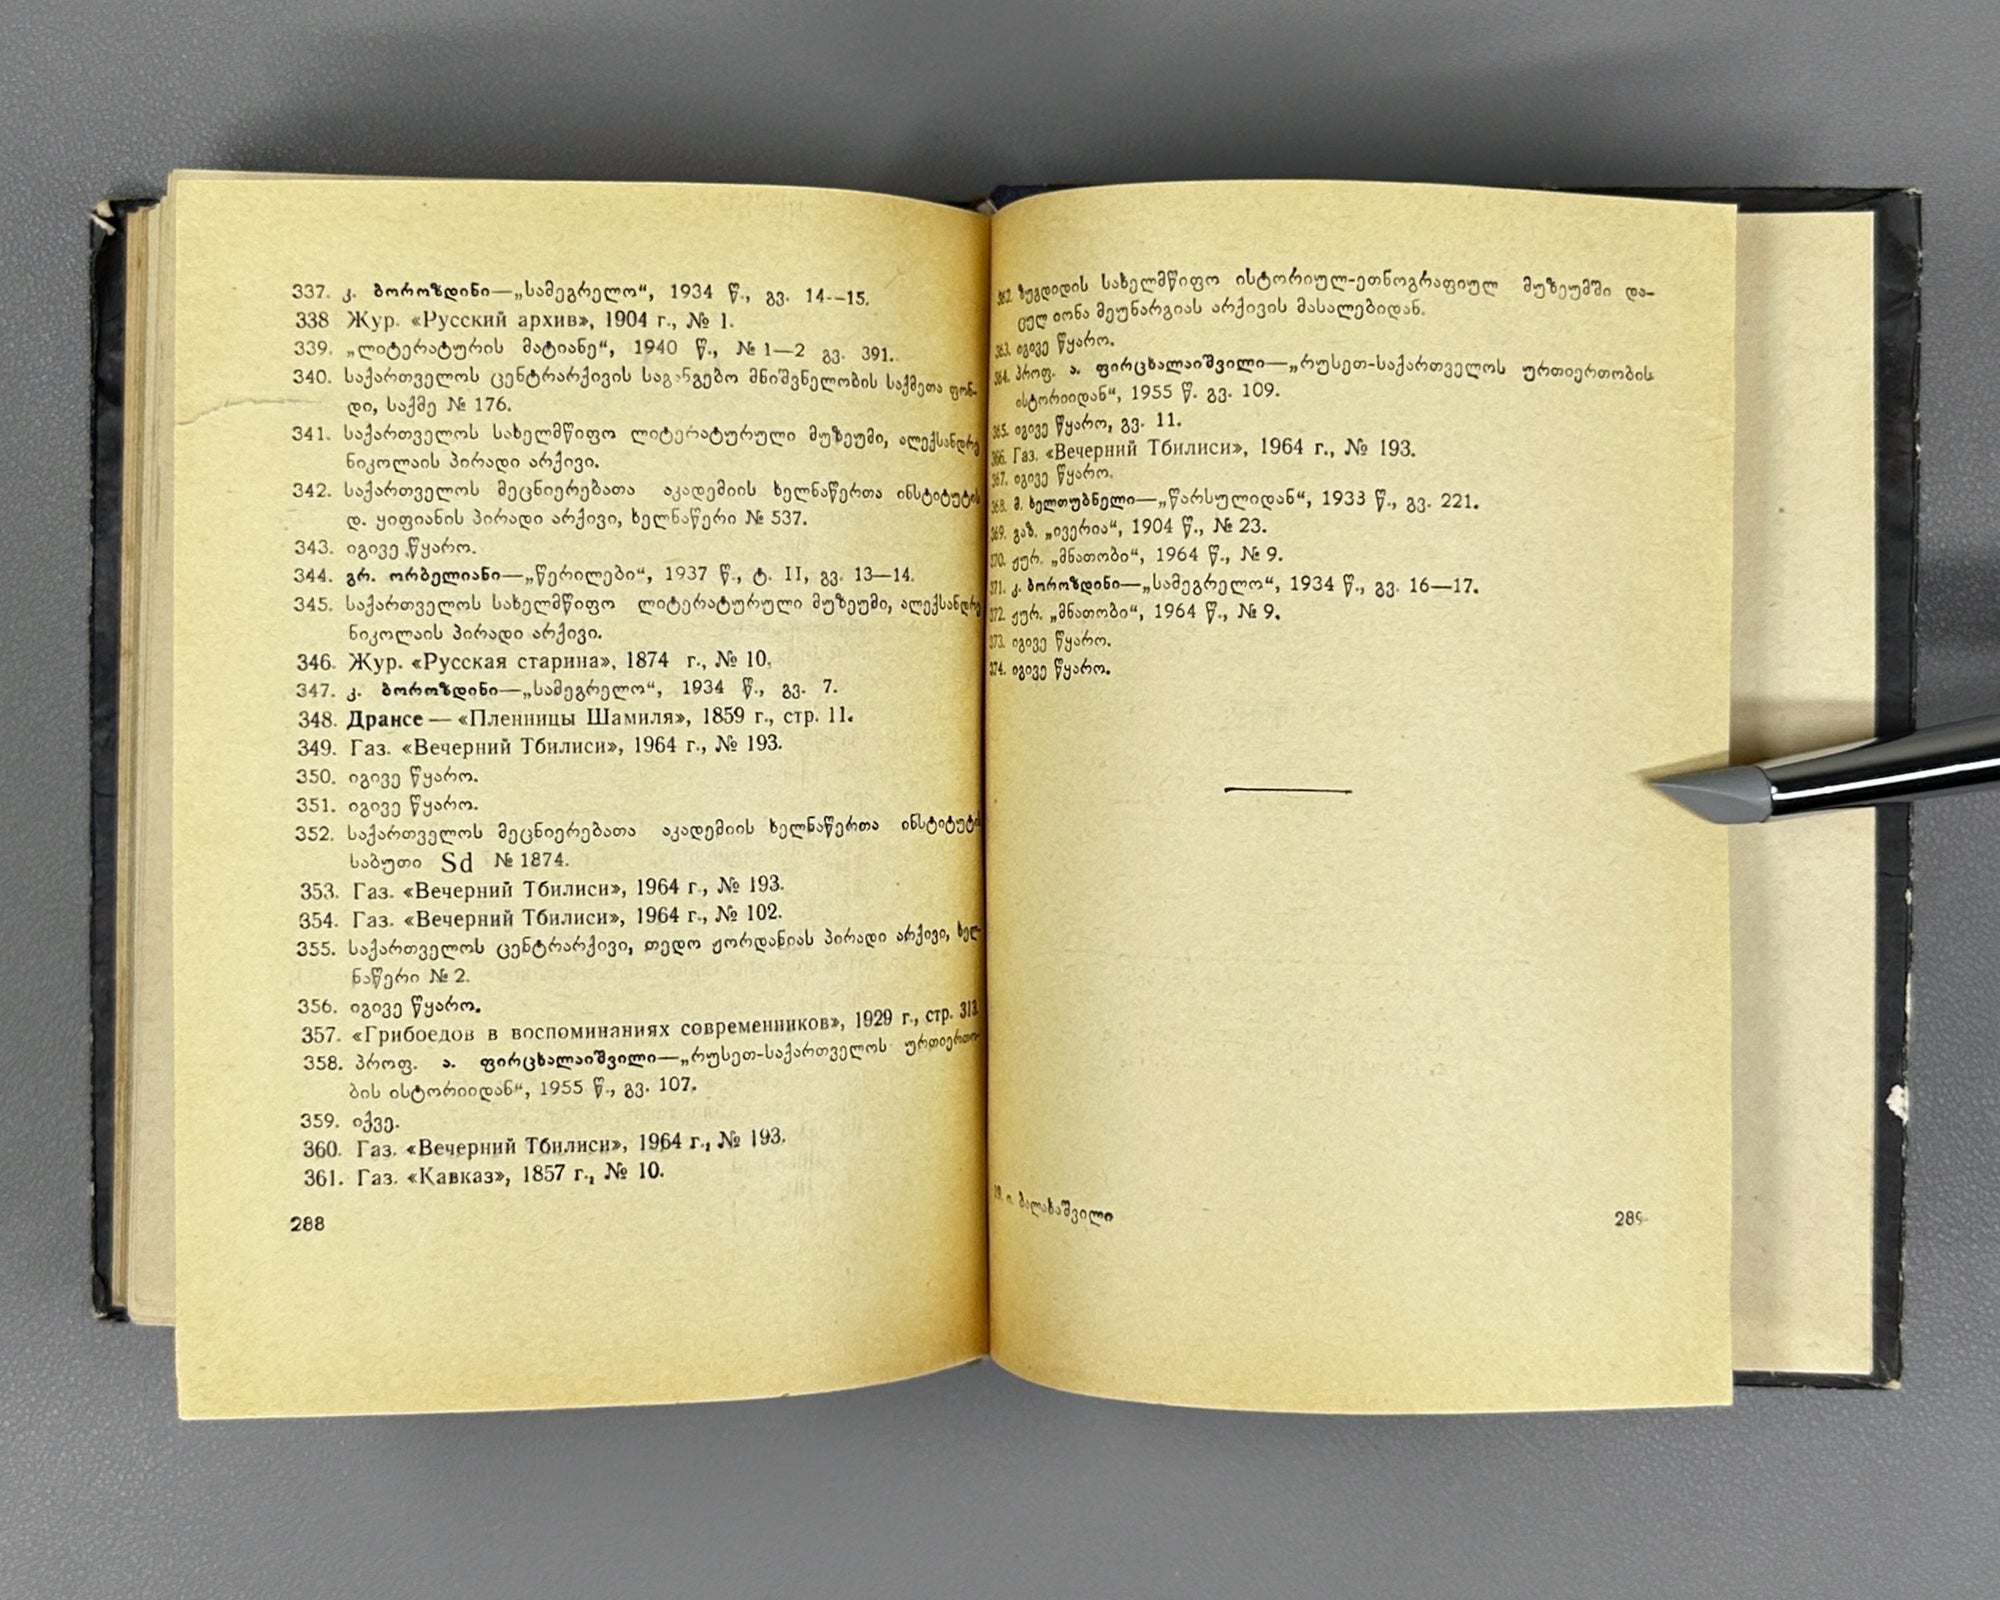 337. კ. ბოროზდინი—„სამეგრელო“, 1934 წ., გვ. 14—15.
338 Жур. «Русский архив», 1904 г., № 1.
339. „ლიტერატურის მატიანე“, 1940 წ., № 1—2 გვ. 391.
340. საქართველოს ცენტრარქივის საგანგებო მნიშვნელობის საქმეთა ფონ-
დი, საქმე № 176.
341. საქართველოს სახელმწიფო ლიტერატურული მუზეუმი, ალექსანდრე
ნიკოლაის პირადი არქივი.
342. საქართველოს მეცნიერებათა აკადემიის ხელნაწერთა ინსტიტუტის
დ. ყიფიანის პირადი არქივი, ხელნაწერი № 537.
343. იგივე წყარო.
344. გრ. ორბელიანი—„წერილები“, 1937 წ., ტ. II, გვ. 13—14.
345. საქართველოს სახელმწიფო ლიტერატურული მუზეუმი, ალექსანდრე
ნიკოლაის პირადი არქივი.
346. Жур. «Русская старина», 1874 г., № 10.
347. კ. ბოროზდინი—„სამეგრელო“, 1934 წ., გვ. 7.
348. Дрансе — «Пленницы Шамиля», 1859 г., стр. 11.
349. Газ. «Вечерний Тбилиси», 1964 г., № 193.
350. იგივე წყარო.
351. იგივე წყარო.
352. საქართველოს მეცნიერებათა აკადემიის ხელნაწერთა ინსტიტუტი
საბუთი Sd № 1874.
353. Газ. «Вечерний Тбилиси», 1964 г., № 193.
354. Газ. «Вечерний Тбилиси», 1964 г., № 102.
355. საქართველოს ცენტრარქივი, თედო ჟორდანიას პირადი არქივი, ხელ-
ნაწერი № 2.
356. იგივე წყარო.
357. «Грибоедов в воспоминаниях современников», 1929 г., стр. 313.
358. პროფ. ა. ფირცხალაიშვილი—„რუსეთ-საქართველოს ურთიერთო-
ბის ისტორიიდან“, 1955 წ., გვ. 107.
359. იქვე.
360. Газ. «Вечерний Тбилиси», 1964 г., № 193.
361. Газ. «Кавказ», 1857 г., № 10.
288
362. ზუგდიდის სახელმწიფო ისტორიულ-ეთნოგრაფიულ მუზეუმში და-
ცულ იონა მეუნარგიას არქივის მასალებიდან.
363. იგივე წყარო.
364. პროფ. ა. ფირცხალაიშვილი—„რუსეთ-საქართველოს ურთიერთობის
ისტორიიდან“, 1955 წ. გვ. 109.
365. იგივე წყარო, გვ. 11.
366. Газ. «Вечерний Тбилиси», 1964 г., № 193.
367. იგივე წყარო.
368. მ. ხელთუბნელი—„წარსულიდან“, 1933 წ., გვ. 221.
369. გაზ. „ივერია“, 1904 წ., № 23.
370. ჟურ. „მნათობი“, 1964 წ., № 9.
371. კ. ბოროზდინი—„სამეგრელო“, 1934 წ., გვ. 16—17.
372. ჟურ. „მნათობი“, 1964 წ., № 9.
373. იგივე წყარო.
374. იგივე წყარო.
19. ი. ბალახაშვილი
289